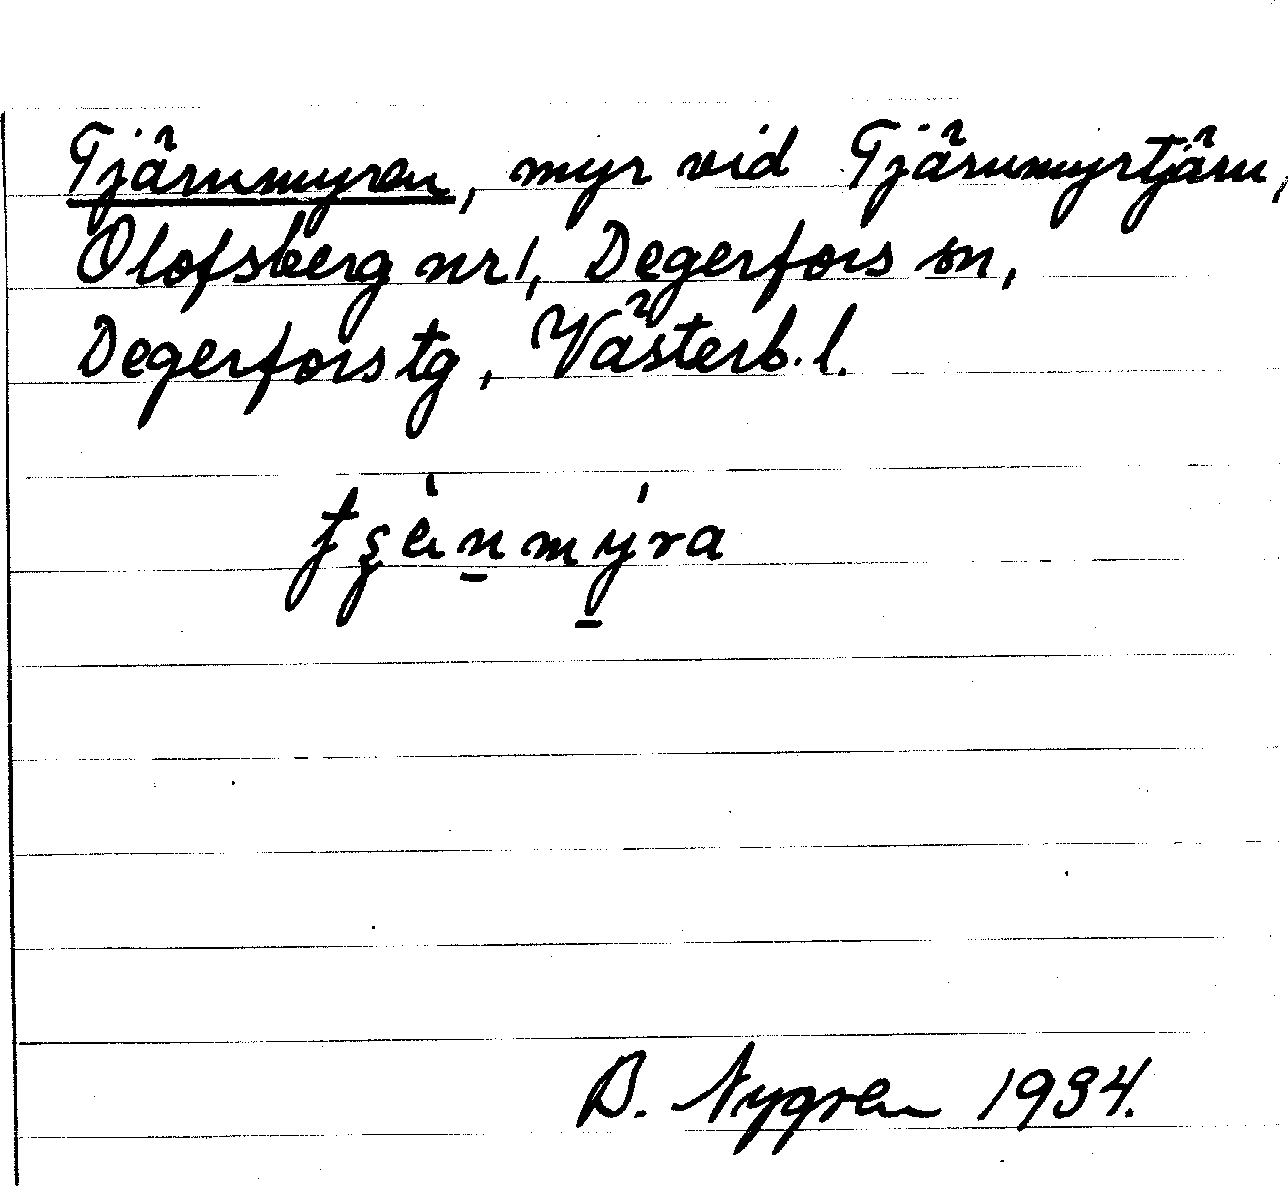 Tjärnmyren, myr vid Tjärnmyrtjärn,
Olofsberg nr 1, Degerfors sn,
Degerfors tg, Västerb. l.
B. Nygren 1934.